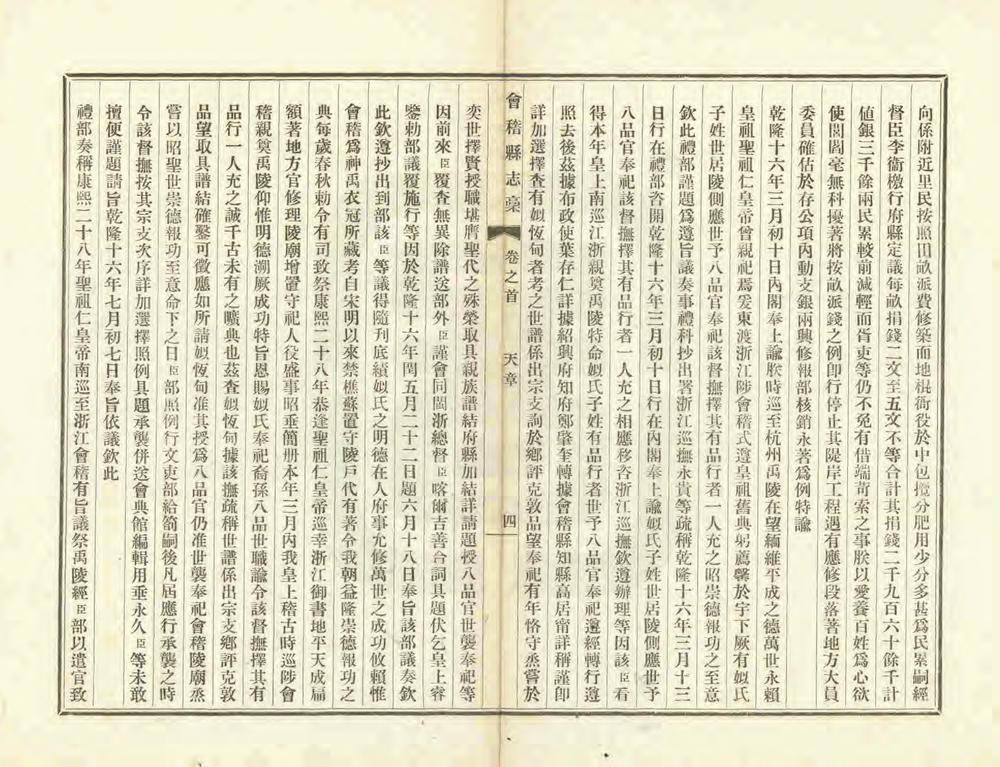 向係附近里民按照田畝派費修築而地棍衙役於中包攬分肥用少分多甚爲民累嗣經
督臣李衞檄行府縣定議每畝捐錢二文至五文不等合計其捐錢二千九百六十餘千計
値銀三千餘兩民累較前減輕而胥吏等仍不免有借端苛索之事朕以愛養百姓爲心欲
使閭閻毫無科擾著將按畝派錢之例卽行停止其隄岸工程遇有應修段落著地方大員
委員確估於存公項內動支銀兩興修報部核銷永著爲例特諭
乾隆十六年三月初十日內閣奉上諭朕時巡至杭州禹陵在望緬維平成之德萬世永賴
皇祖聖祖仁皇帝曾親祀焉爰東渡浙江陟會稽式遵皇祖舊典躬薦馨於宇下厥有姒氏
子姓世居陵側應世予八品官奉祀該督撫擇其有品行者一人充之昭崇德報功之至意
欽此禮部謹題爲遵旨議奏事禮科抄出署浙江巡撫永貴等疏稱乾隆十六年三月十三
日行在禮部咨開乾隆十六年三月初十日行在內閣奉上諭姒氏子姓世居陵側應世予
八品官奉祀該督撫擇其有品行者一人充之相應移咨浙江巡撫欽遵辦理等因該臣看
得本年皇上南巡江浙親奠禹陵特命姒氏子姓有品行者世予八品官奉祀遵經轉行遵
照去後茲據布政使葉存仁詳據紹興府知府鄭肇奎轉據會稽縣知縣高居甯詳稱謹卽
詳加選擇查有姒恆甸者考之世譜係出宗支詢於鄉評克敦品望奉祀有年恪守烝嘗於
會稽縣志稾
卷之首
天章
四
奕世擇賢授職堪膺聖代之殊榮取具親族譜結府縣加結詳請題授八品官世襲奉祀等
因前來臣覆查無異除譜送部外臣謹會同閩浙總督臣喀爾吉善合詞具題伏乞皇上睿
鑒勅部議覆施行等因於乾隆十六年閏五月二十二日題六月十八日奉旨該部議奏欽
此欽遵抄出到部該臣等議得隨刋底績姒氏之明德在人府事允修萬世之成功攸賴惟
會稽爲神禹衣冠所藏考自宋明以來禁樵蘇置守陵戶代有著令我朝益隆崇德報功之
典每歲春秋勅令有司致祭康熙二十八年恭逢聖祖仁皇帝巡幸浙江御書地平天成扁
額著地方官修理陵廟增置守祀人役盛事昭垂簡册本年三月內我皇上稽古時巡陟會
稽親奠禹陵仰惟明德溯厥成功特旨恩賜姒氏奉祀裔孫八品世職諭令該督撫擇其有
品行一人充之誠千古未有之曠典也茲查姒恆甸據該撫疏稱世譜係出宗支鄉評克敦
品望取具譜結確鑿可徵應如所請姒恆甸准其授爲八品官仍准世襲奉祀會稽陵廟烝
嘗以昭聖世崇德報功至意命下之日臣部照例行文吏部給劄嗣後凡屆應行承襲之時
令該督撫按其宗支次序詳加選擇照例具題承襲併送會典館編輯用垂永久臣等未敢
擅便謹題請旨乾隆十六年七月初七日奉旨依議欽此
禮部奏稱康熙二十八年聖祖仁皇帝南巡至浙江會稽有旨議祭禹陵經臣部以遣官致